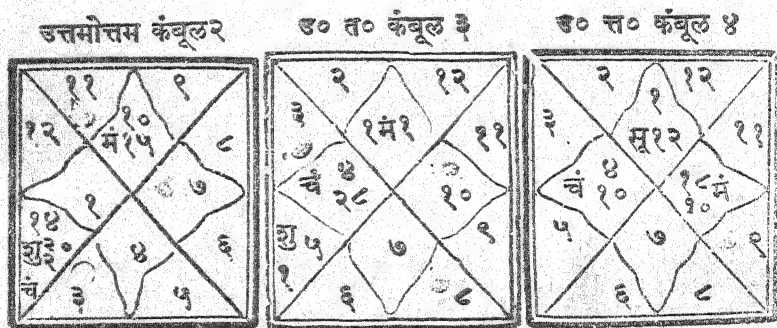 उत्तमोत्तम कंबूल२
११ ९
१०
१२ मं१५ ८
१ ७
१४
शु २० ४ ६
चं ३ ५
उ० त० कंबूल ३
२ १२
३ १मं१ ११
४
चं २८ १०
शु ५ ७ ९
१ ६ ८
उ० त्त० कंबूल ४
२ १२
१
३ सू१२ ११
४ १८
चं १० १० मं
५ ७ ९
८